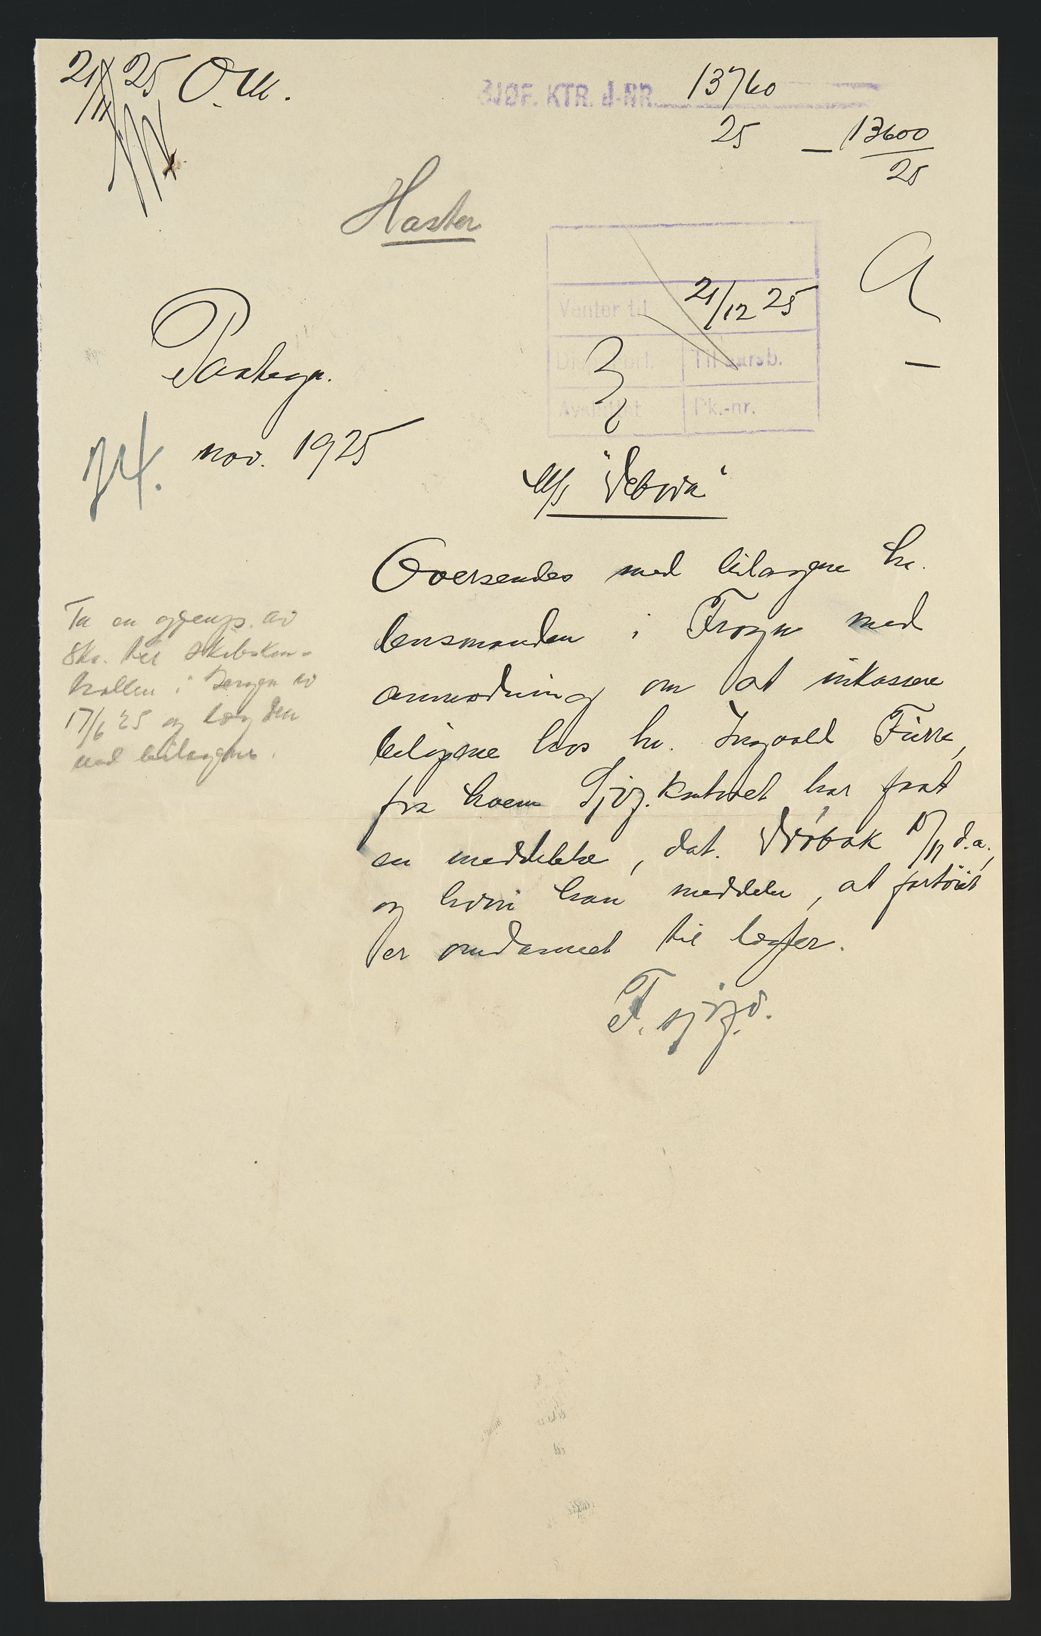 21/11 25 O.M.
SJØF. KTR. J-NR. 13760
25 — 13600
25
Haster
Venter til 21/12 25
Tilarsb.
Pk.-nr.
Paategn.
24. nov. 1925
M/S "Debora"
Oversendes med bilagene hr.
lensmanden i Frogn med
anmodning om at inkassere
beløpene hos hr. Ingvald Furre,
fra hvem Sjøf.kontoret har faat
en meddelelse, dat. Drøbak 10/11 d.a.,
og hvori han meddeler, at fartøiet
er omdannet til lægter.
F. sjøfd.
Ta en gjenp. av
Skr. til Skibskon-
trollen i Bergen av
17/6 25 og læg den
ved bilagene.